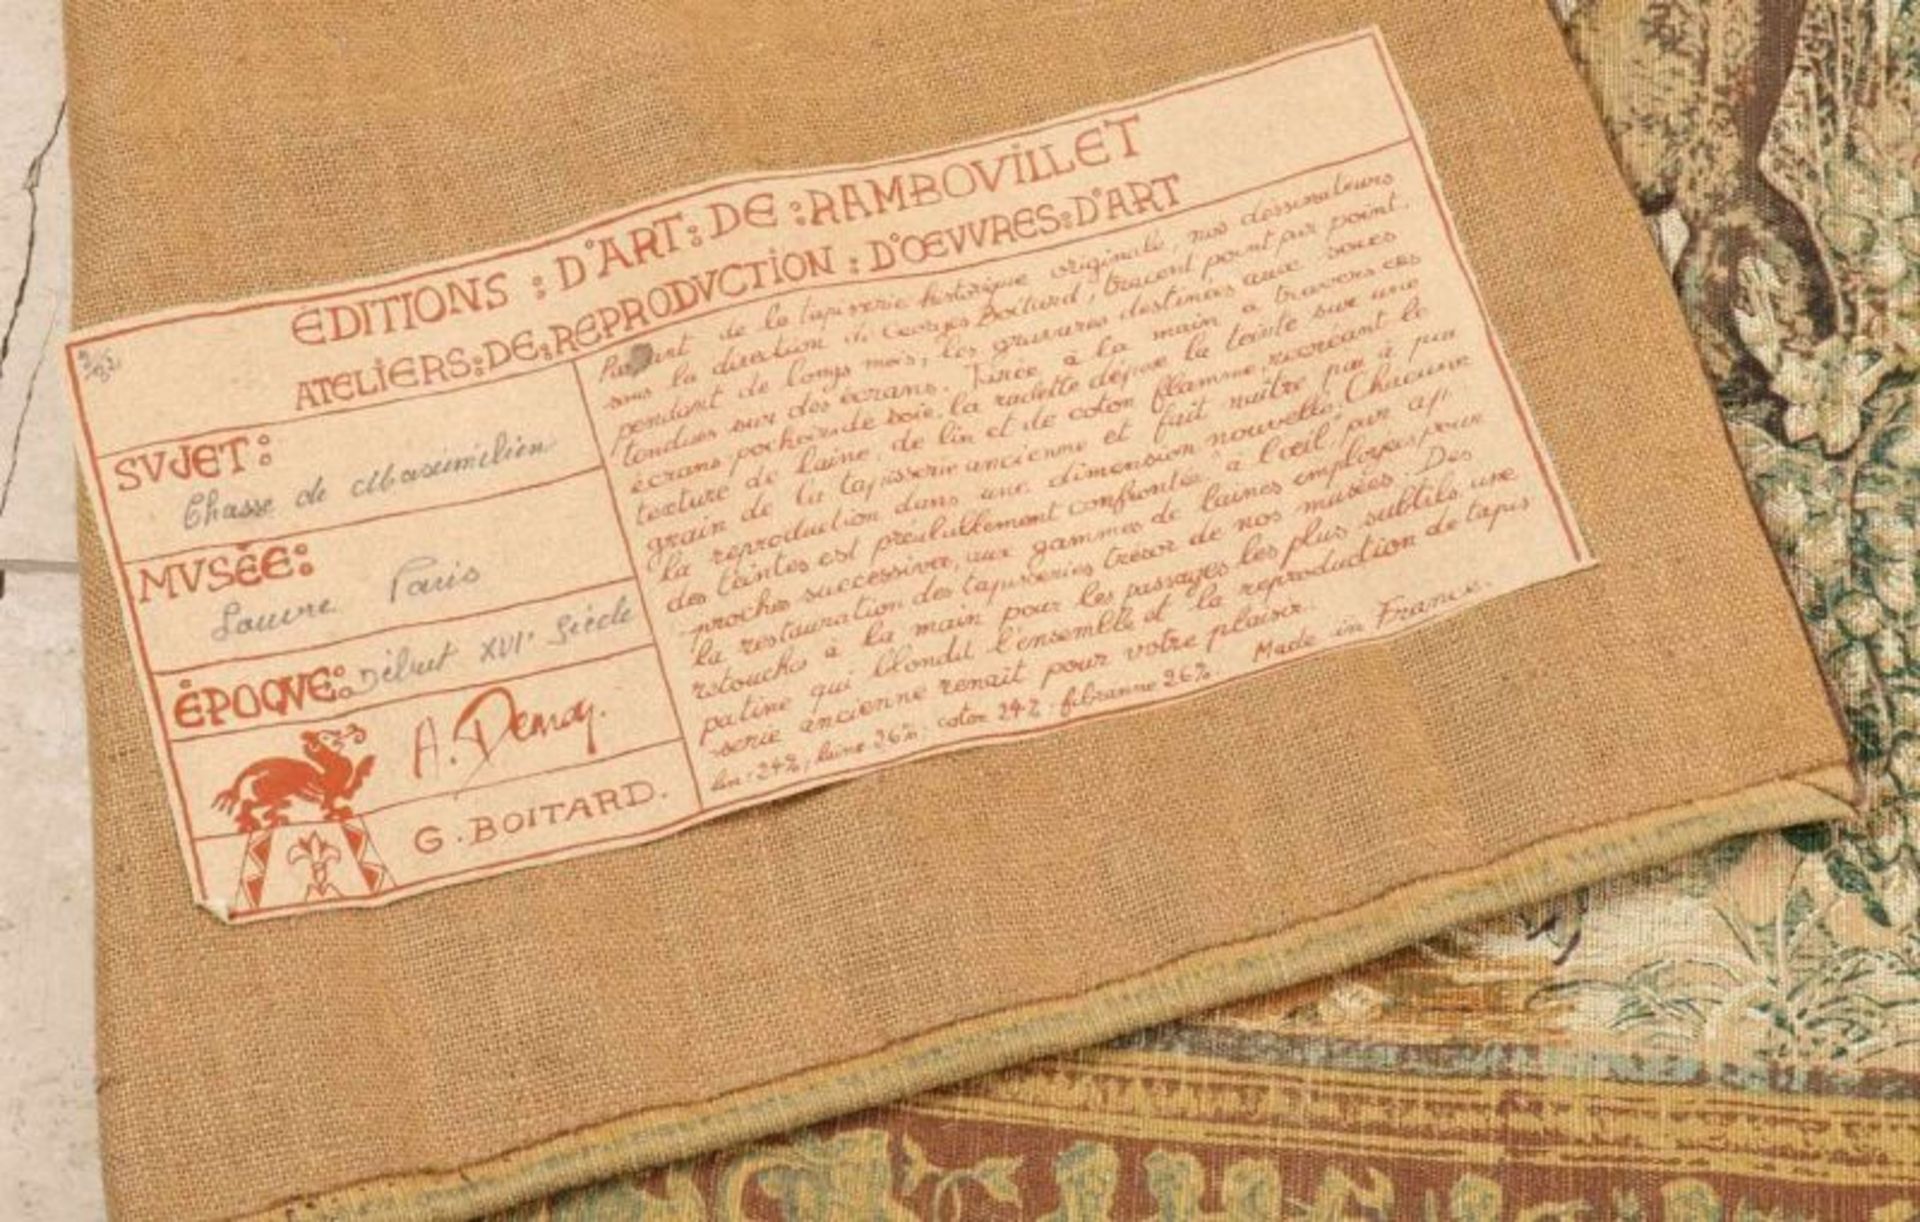 EDITIONS : D'ART : DE : RAMBOVILLET
ATELIERS : DE : REPRODVCTION : D'ŒVVRES : D'ART
SVJET :
Chasse de Maximilien
MVSÉE :
Louvre Paris
ÉPOQVE : Début XVI° Siècle
A. Demoy.
G. BOITARD.
Partant de la tapisserie historique originale, nos dessinateurs
sous la direction de Georges Boitard, tracent point par point,
pendant de longs mois, les gravures destinées aux soies
tendues sur des écrans. Tirée à la main à travers ces
écrans, pochoirs de soie, la raclette dépose la teinte sur une
texture de laine, de lin et de coton flammé, recréant le
grain de la tapisserie ancienne et fait naître pas à pas
la reproduction dans une dimension nouvelle. Chacune
des teintes est préalablement confrontée à l'oeil par ap-
proches successives, aux gammes de laines employées pour
la restauration des tapisseries trésor de nos musées. Des
retouches à la main pour les passages les plus subtils, une
patine qui blondit l'ensemble et la reproduction de tapis
-serie ancienne renait pour votre plaisir.
lin : 24%, laine 26%, coton 24%, fibranne 26%. Made in France.